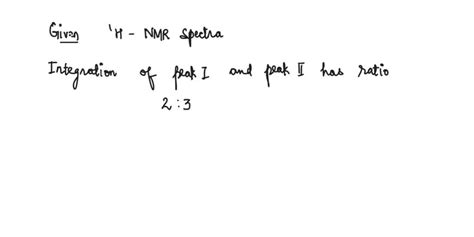 Given ¹H - NMR Spectra
Integration of peak I and peak II has ratio
2 : 3